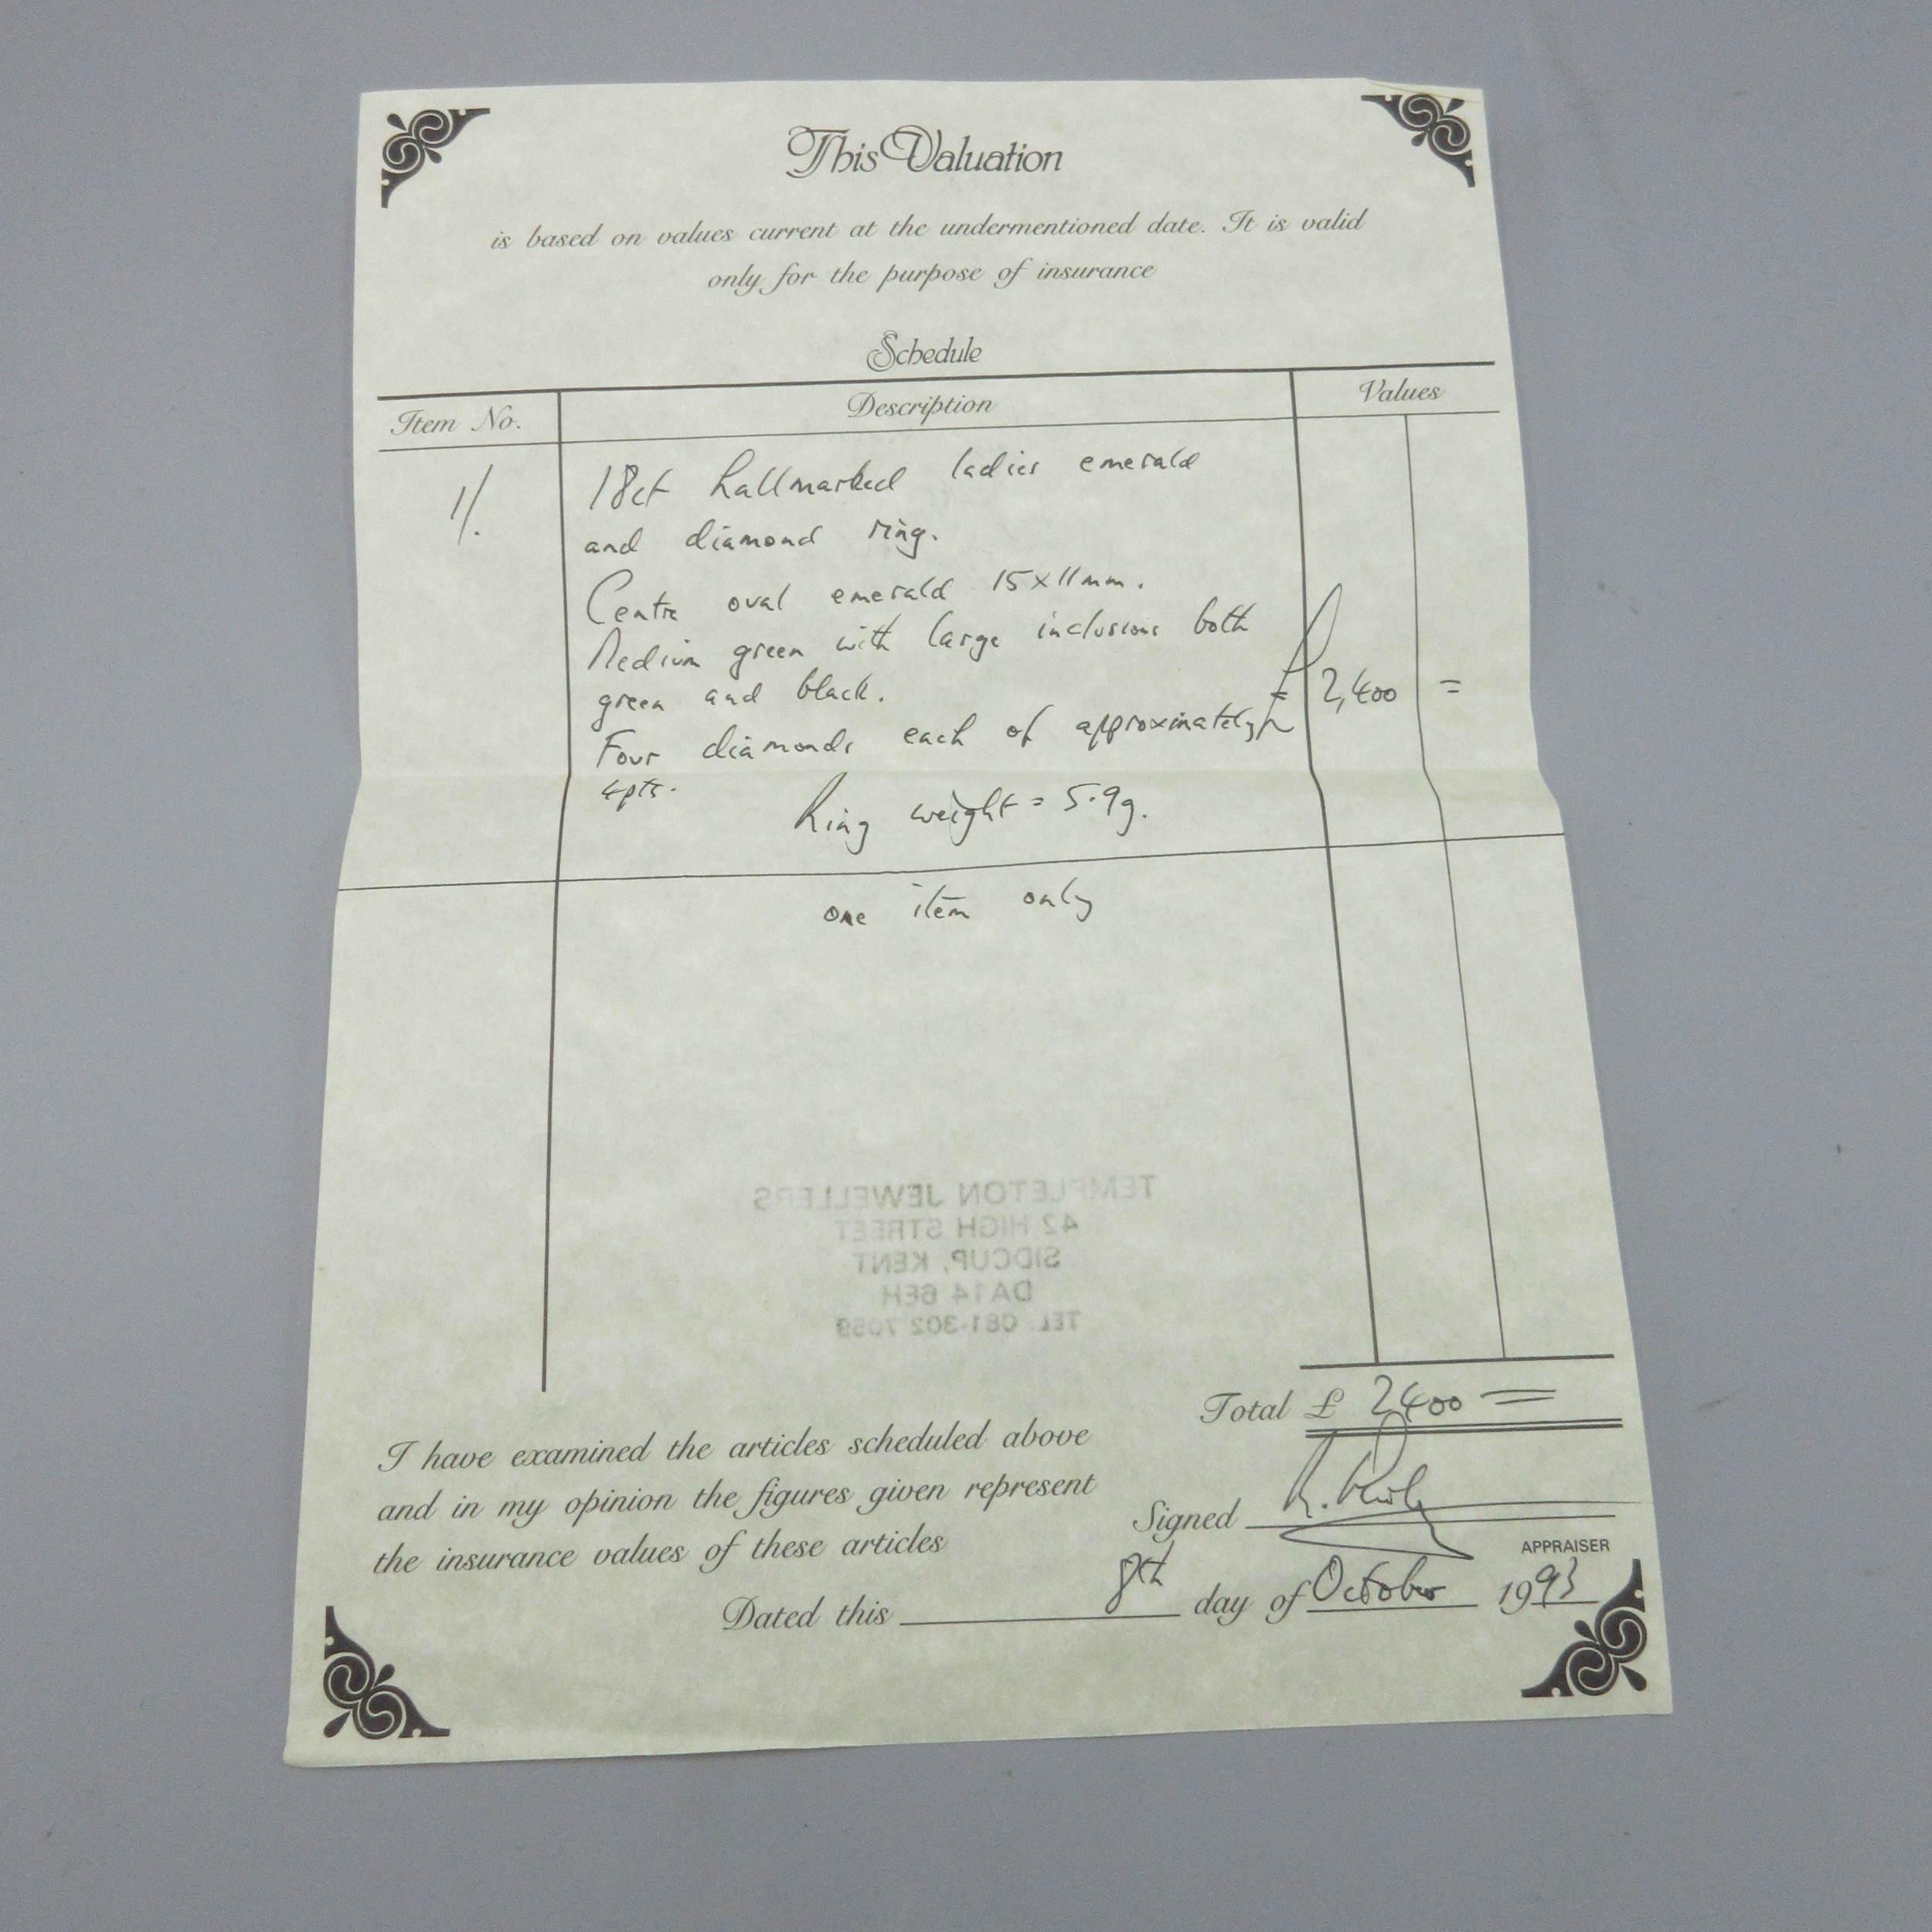 This Valuation
is based on values current at the undermentioned date. It is valid
only for the purpose of insurance
Schedule
Item No.
Description
Values
1/.
18ct hallmarked ladies emerald
and diamond ring.
Centre oval emerald 15x11mm.
Medium green with large inclusions both
green and black.
£ 2,400 =
Four diamonds each of approximately
4pts.
Ring weight = 5.9g.
one item only
TEMPLETON JEWELLERS
42 HIGH STREET
SIDCUP, KENT
DA14 6EH
TEL. 081-302 7059
Total £ 2400 =
I have examined the articles scheduled above
and in my opinion the figures given represent
the insurance values of these articles
Signed
APPRAISER
Dated this 8th day of October 1993